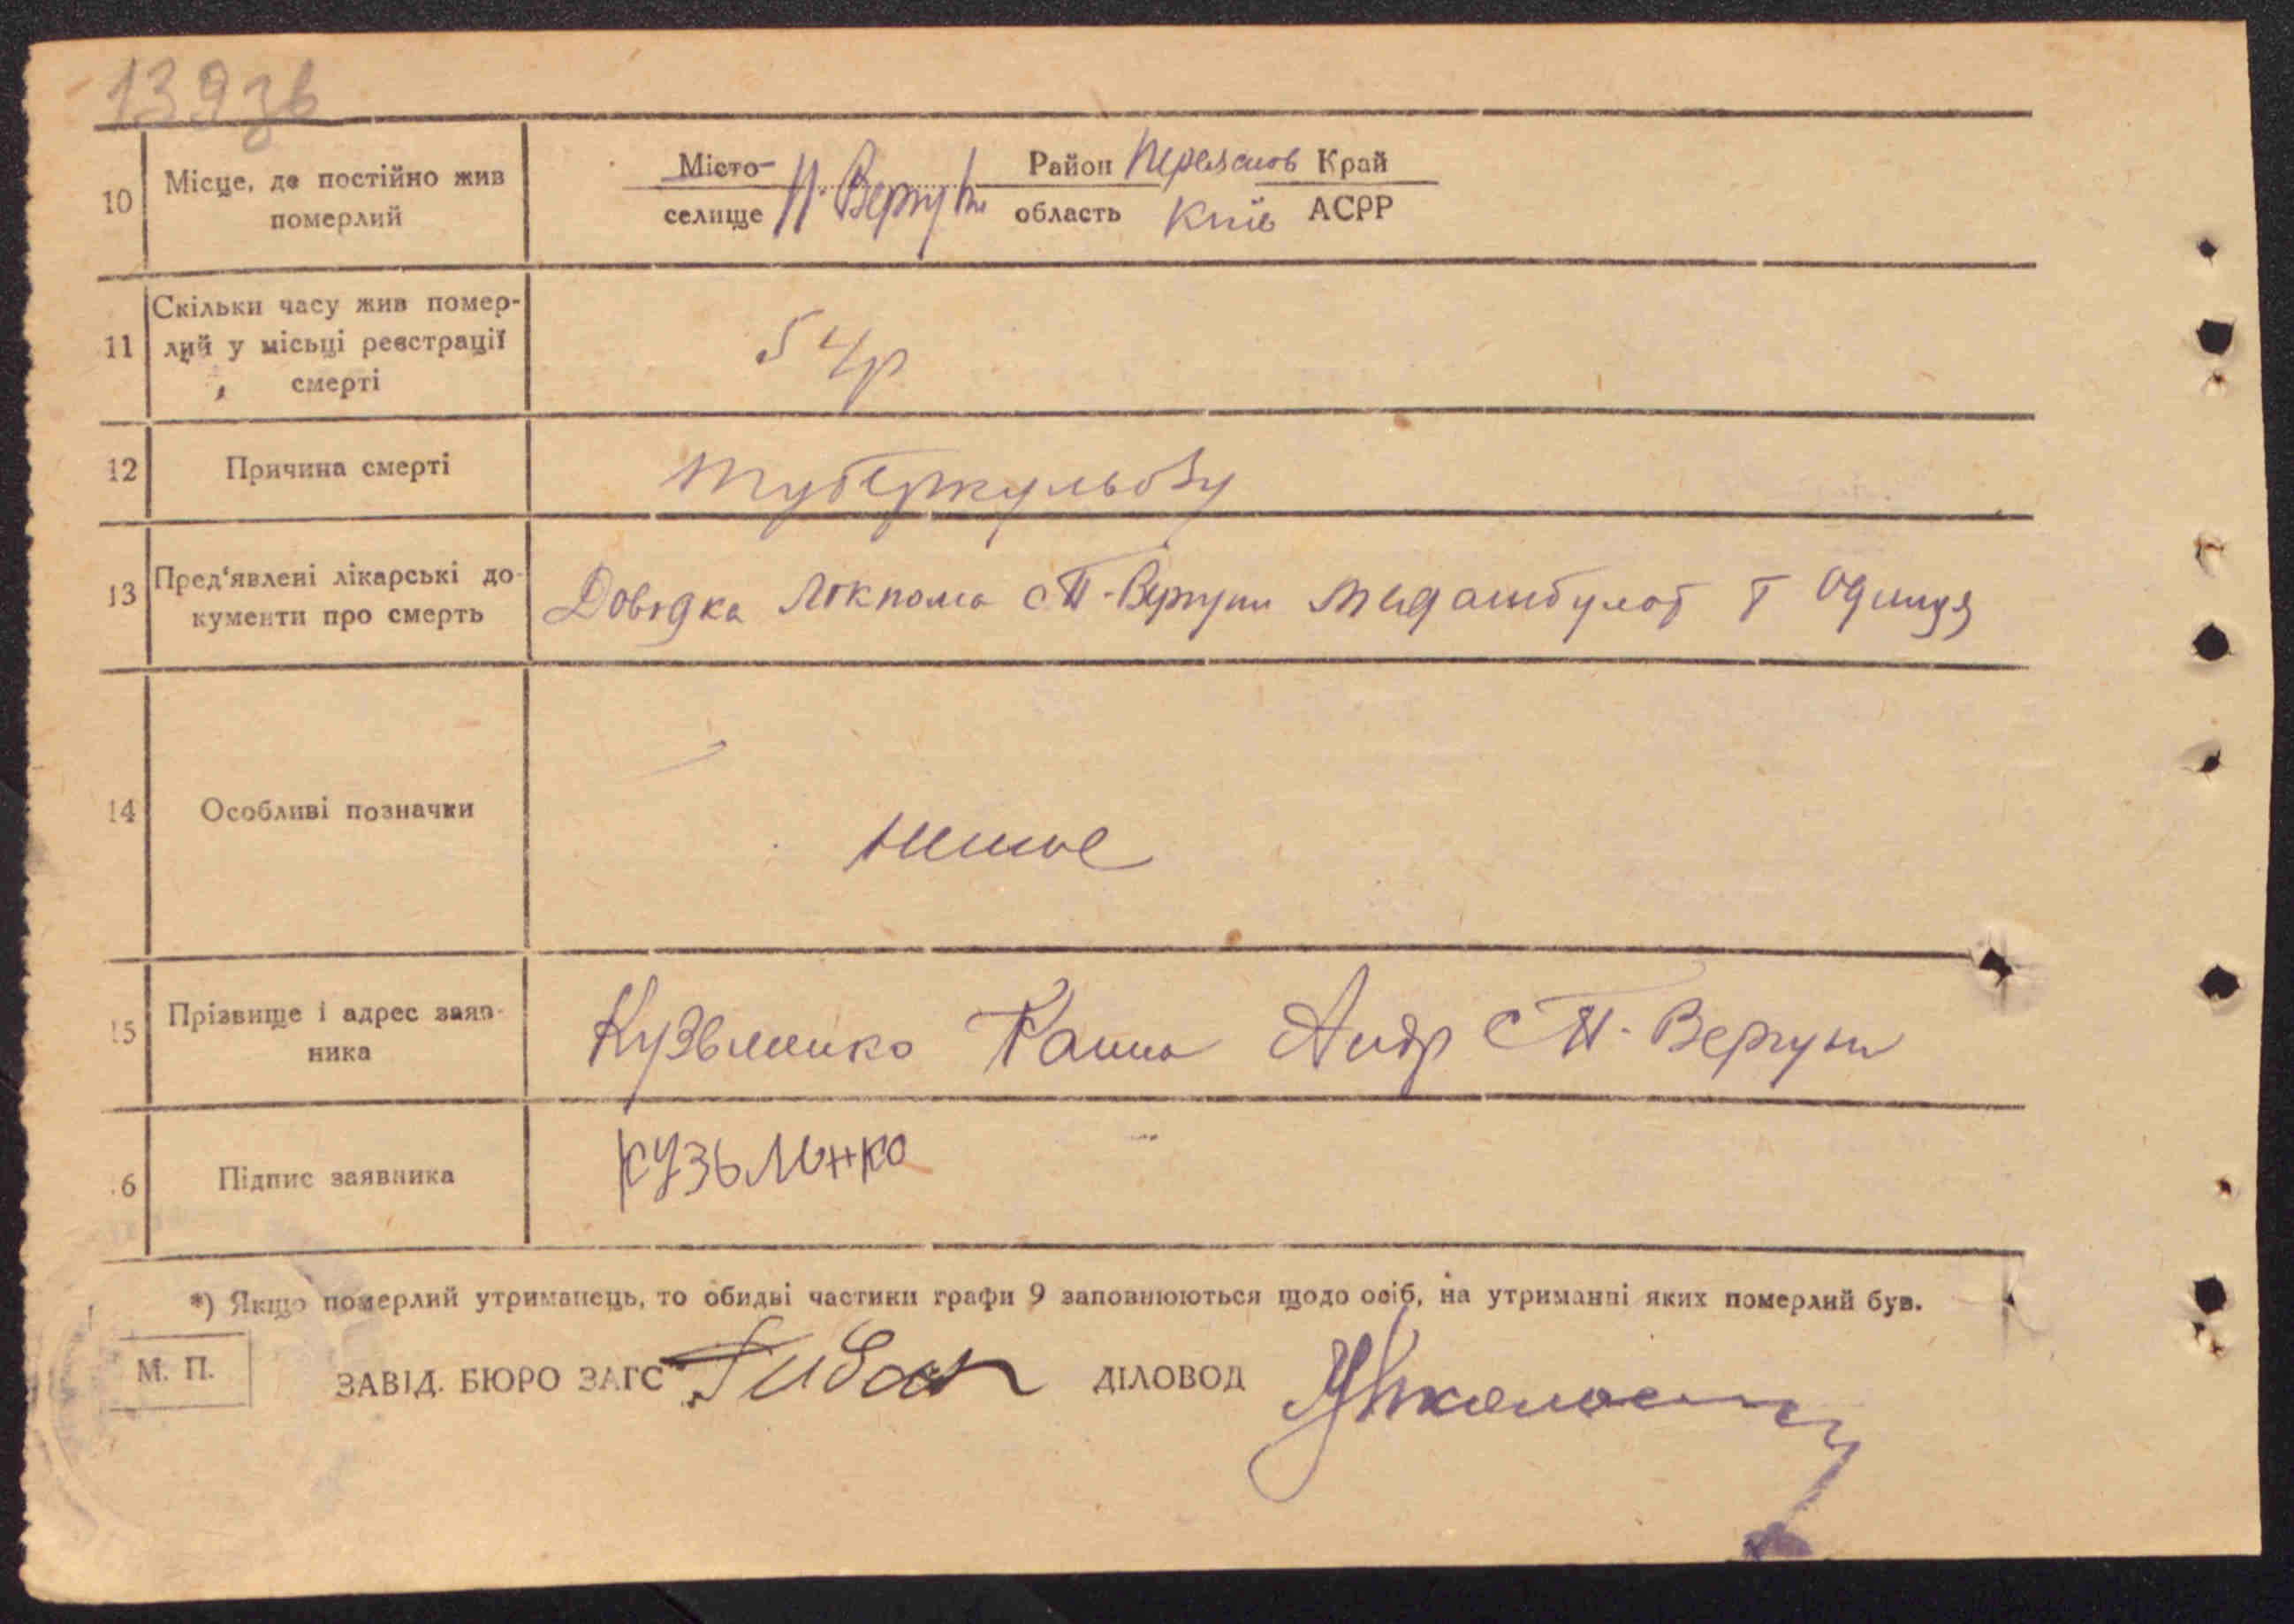 10 Місце, де постійно жив
померлий
Місто- Район Переяслов Край
селище П. Вергуни область Київ АСРР
11 Скільки часу жив помер-
лий у місьці реєстрації
смерті
54р
12 Причина смерті
туберкульозу
13 Пред'явлені лікарські до-
кументи про смерть
Довідка с П-Вергуни
14 Особливі позначки
немає
15 Прізвище і адрес заяв-
ника
Кузьменко Ганна Андр с П-Вергуни
6 Підпис заявника
КУЗЬМИНКО
*) Якщо померлий утриманець, то обидві частини графи 9 заповнюються щодо осіб, на утриманні яких померлий був.
М. П.
ЗАВІД. БЮРО ЗАГС ДІЛОВОД